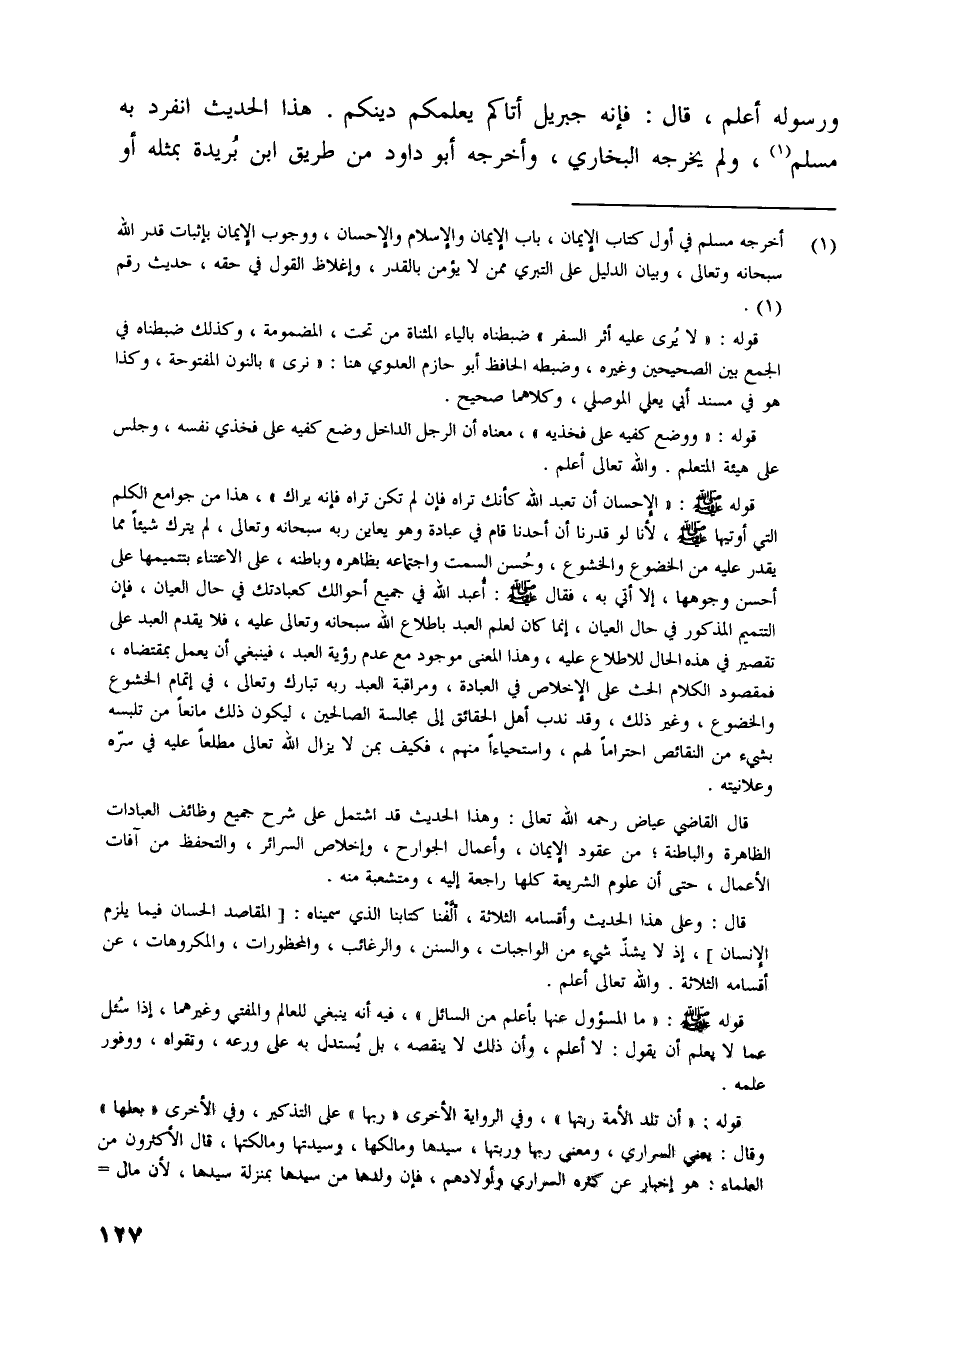 ورسوله أعلم ، قال : فإنه جبريل أتاكم يعلمكم دينكم . هذا الحديث انفرد به
مسلم(١) ، ولم يخرجه البخاري ، وأخرجه أبو داود من طريق ابن بُريدة بمثله أو
(١) أخرجه مسلم في أول كتاب الإيمان ، باب الإيمان والإسلام والإحسان ، ووجوب الإيمان بإثبات قدر الله
سبحانه وتعالى ، وبيان الدليل على التبري ممن لا يؤمن بالقدر ، وإغلاظ القول في حقه ، حديث رقم
(١) .
قوله : « لا يُرى عليه أثر السفر » ضبطناه بالياء المثناة من تحت ، المضمومة ، وكذلك ضبطناه في
الجمع بين الصحيحين وغيره ، وضبطه الحافظ أبو حازم العدوي هنا : « نرى » بالنون المفتوحة ، وكذا
هو في مسند أبي يعلي الموصلي ، وكلاهما صحيح .
قوله : « ووضع كفيه على فخذيه » ، معناه أن الرجل الداخل وضع كفيه على فخذي نفسه ، وجلس
على هيئة المتعلم . والله تعالى أعلم .
قوله ﷺ : « الإحسان أن تعبد الله كأنك تراه فإن لم تكن تراه فإنه يراك » ، هذا من جوامع الكلم
التي أوتيها ﷺ ، لأنا لو قدرنا أن أحدنا قام في عبادة وهو يعاين ربه سبحانه وتعالى ، لم يترك شيئاً مما
يقدر عليه من الخضوع والخشوع ، وحُسن السمت واجتماعه بظاهره وباطنه ، على الاعتناء بتتميمها على
أحسن وجوهها ، إلا أتي به ، فقال ﷺ : أُعبد الله في جميع أحوالك كعبادتك في حال العيان ، فإن
التتميم المذكور في حال العيان ، إنما كان لعلم العبد باطلاع الله سبحانه وتعالى عليه ، فلا يقدم العبد على
تقصير في هذه الحال للاطلاع عليه ، وهذا المعنى موجود مع عدم رؤية العبد ، فينبغي أن يعمل بمقتضاه ،
فمقصود الكلام الحث على الإخلاص في العبادة ، ومراقبة العبد ربه تبارك وتعالى ، في إتمام الخشوع
والخضوع ، وغير ذلك ، وقد ندب أهل الحقائق إلى مجالسة الصالحين ، ليكون ذلك مانعاً من تلبسه
بشيء من النقائص احتراماً لهم ، واستحياءاً منهم ، فكيف بمن لا يزال الله تعالى مطلعاً عليه في سرّه
وعلانيته .
قال القاضي عياض رحمه الله تعالى : وهذا الحديث قد اشتمل على شرح جميع وظائف العبادات
الظاهرة والباطنة ؛ من عقود الإيمان ، وأعمال الجوارح ، وإخلاص السرائر ، والتحفظ من آفات
الأعمال ، حتى أن علوم الشريعة كلها راجعة إليه ، ومتشعبة منه .
قال : وعلى هذا الحديث وأقسامه الثلاثة ، ألَّفْنا كتابنا الذي سميناه : [ المقاصد الحسان فيما يلزم
الإنسان ] ، إذ لا يشذّ شيء من الواجبات ، والسنن ، والرغائب ، والمحظورات ، والمكروهات ، عن
أقسامه الثلاثة . والله تعالى أعلم .
قوله ﷺ : « ما المسؤول عنها بأعلم من السائل » ، فيه أنه ينبغي للعالم والمفتي وغيرهما ، إذا سُئل
عما لا يعلم أن يقول : لا أعلم ، وأن ذلك لا ينقصه ، بل يُستدل به على ورعه ، وتقواه ، ووفور
علمه .
قوله : « أن تلد الأمة ربتها » ، وفي الرواية الأخرى « ربها » على التذكير ، وفي الأخرى « بعلها »
وقال : يعني السراري ، ومعنى ربها وربتها ، سيدها ومالكها ، وسيدتها ومالكتها ، قال الأكثرون من
العلماء : هو إخبار عن كثره السراري ولأولادهم ، فإن ولدها من سيدها بمنزلة سيدها ، لأن مال =
١٢٧